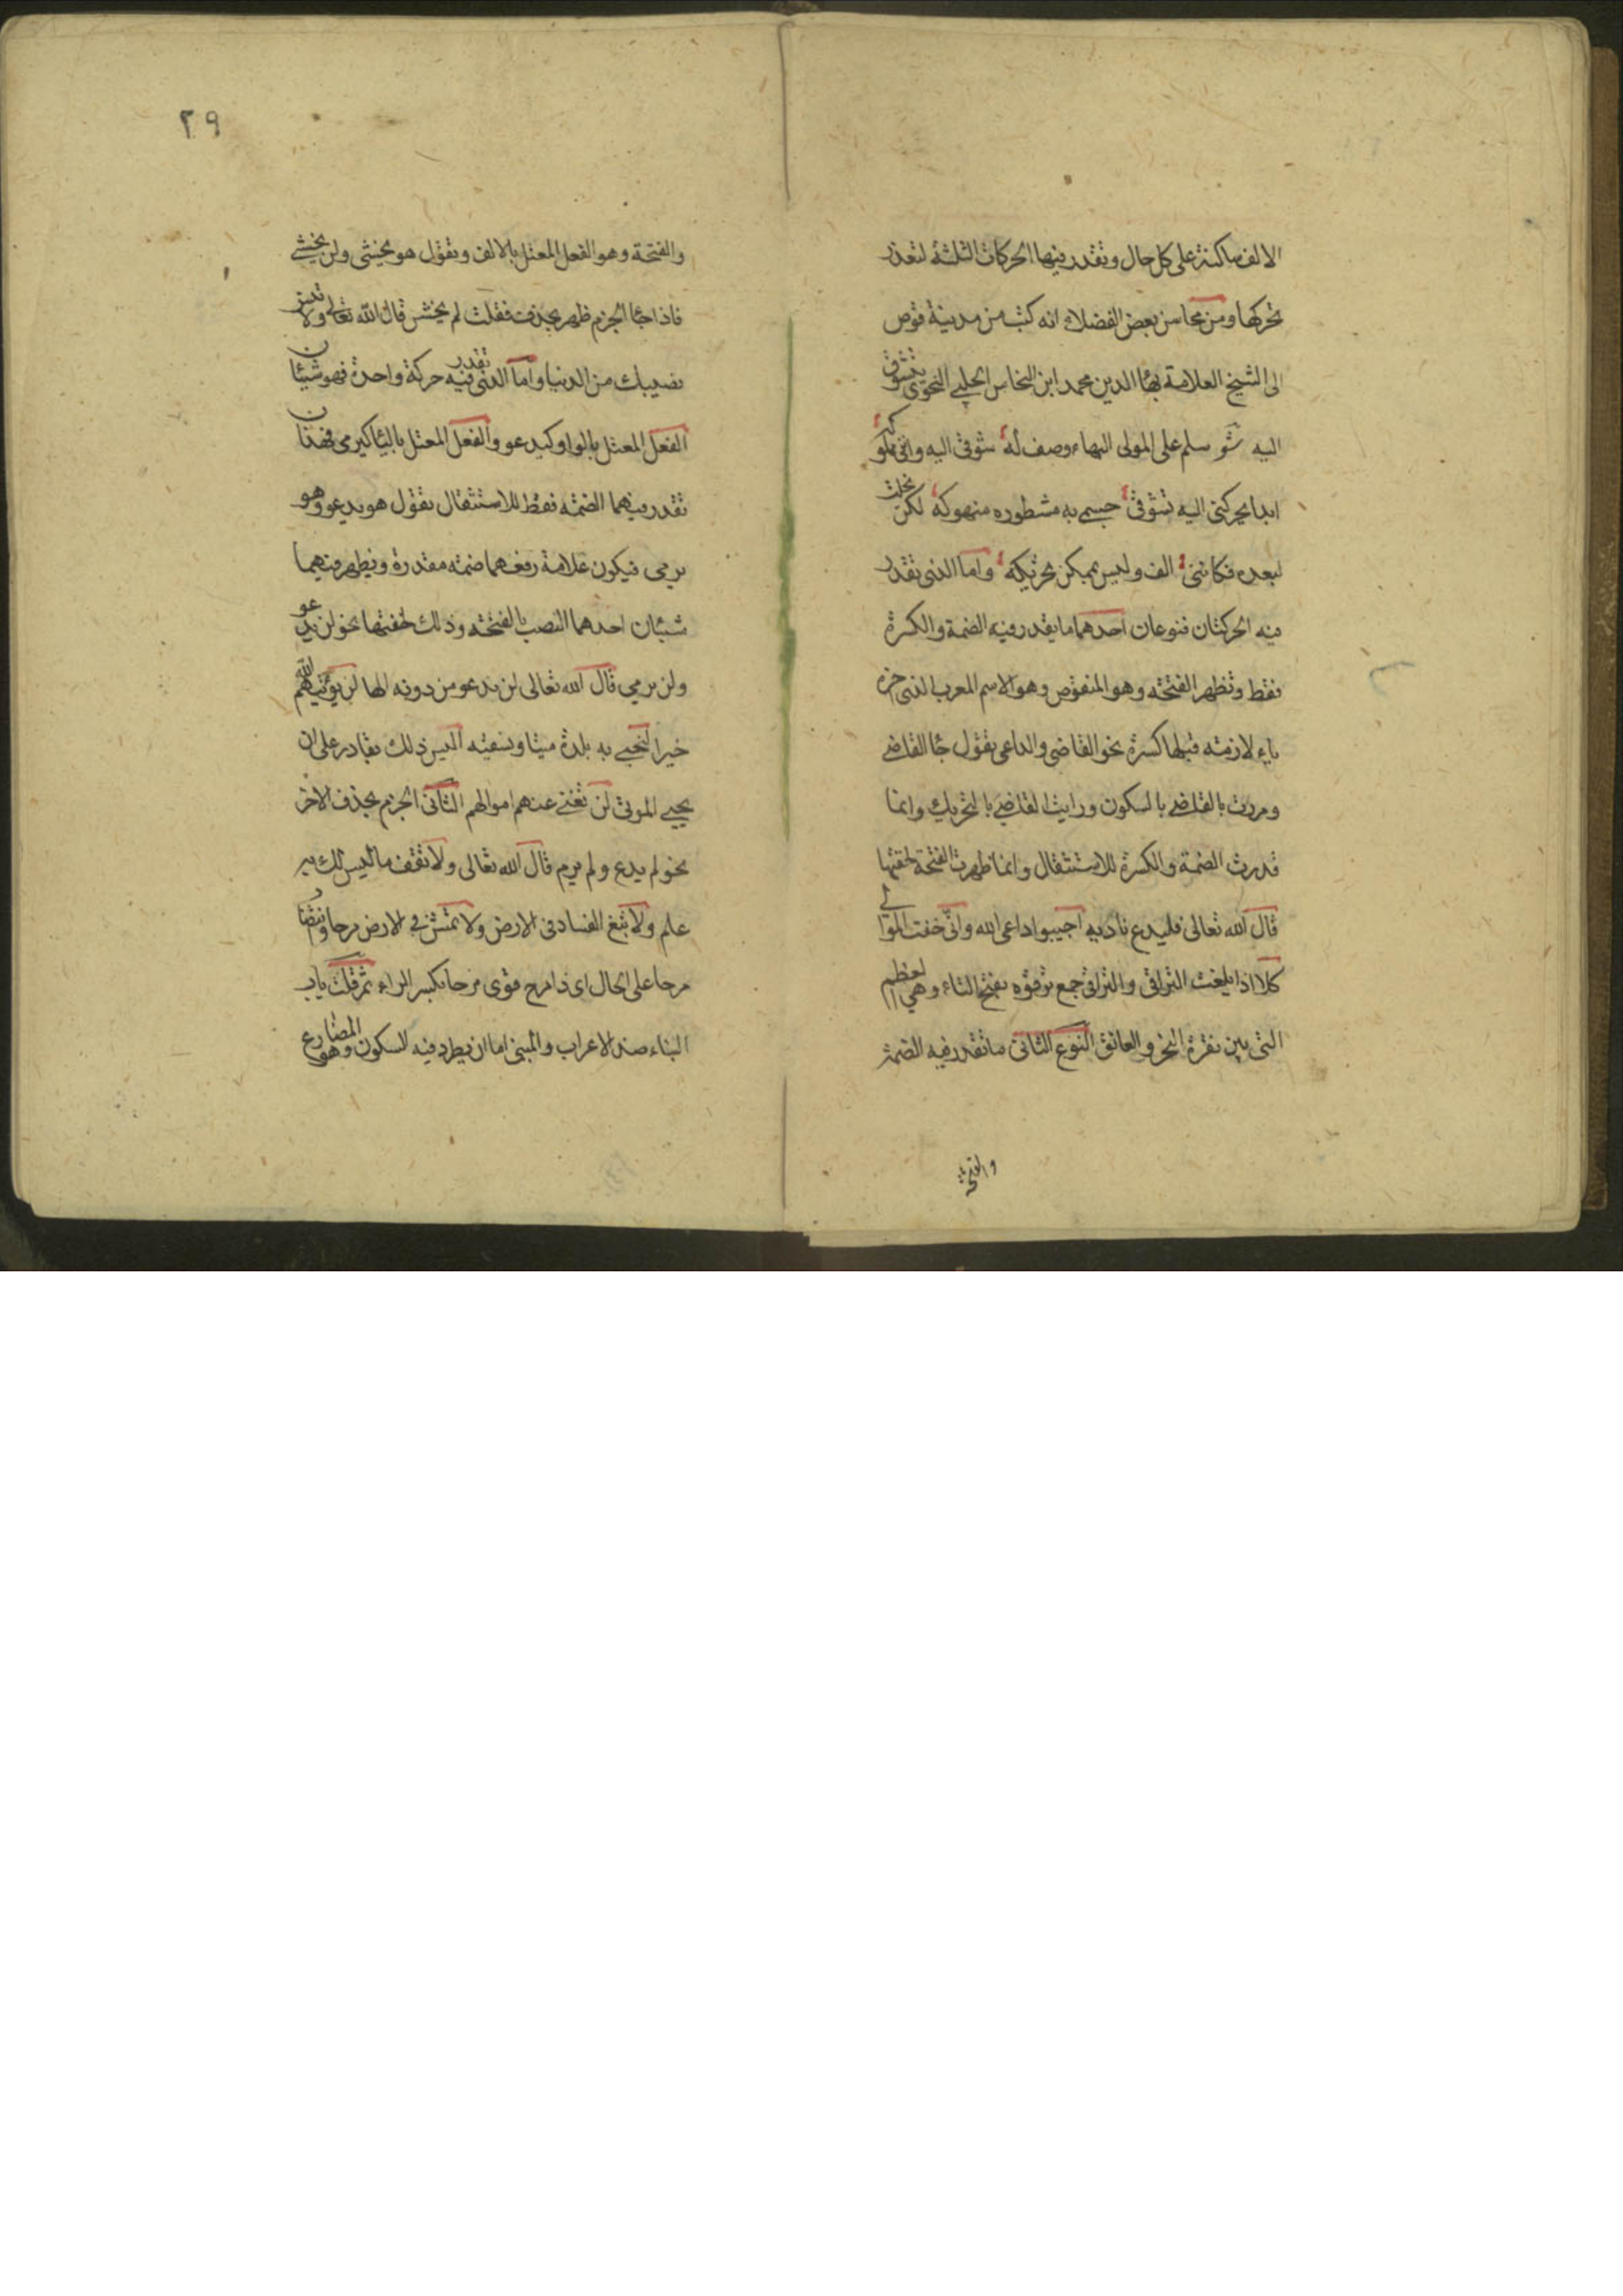 الالف ساكنة على كل حال وتقدر فيها الحركات الثلثة لتعذر
تحركها ومن محاسن بعض الفضلاء انه كتب من مدينة قوص
الى الشيخ العلامة بهاء الدين محمد ابن النحاس الحلبي النحوى يتشوق
اليه شو سلم على المولى البهاء وصف له شوقى اليه وانى مملوكه
ابدا يحركنى اليه تشوقى جسمى به مشطوره منهوكه لكن نحلت
لبعده فكاننى الف وليس بممكن تحريكه واما الذى تقدر
فيه الحركتان فنوعان احدهما ما يقدر فيه الضمة والكسرة
فقط وتظهر الفتحة وهو المنقوص وهو الاسم المعرب الذى اخره
ياء لازمته قبلها كسرة نحو القاضى والداعى تقول جا القاضى
ومررت بالقاضى بالسكون ورايت القاضى بالتحريك وانما
قدرت الضمة والكسرة للاستثقال وانما ظهرت الفتحة لخفتها
قال الله تعالى فليدع ناديه اجيبوا داعى الله وانى خفت الموالى
كلا اذا بلغت التراقى والتراقى جمع ترقوه بفتح التاء وهى العظم
التى بين نقرة النحر والعاتق النوع الثانى ما تقدر فيه الضمة
والفتحة
٢٩
والفتحة وهو الفعل المعتل بالالف وتقول هو يخشى ولن يخشى
فاذا جا الجزم ظهر بحذف فقلت لم يخش قال الله تعالى ولا تنس
نصيبك من الدنيا واما الذى تقدر فيه حركة واحدة فهو شيئان
الفعل المعتل بالواو كيدعو والفعل المعتل باليا كيرمى فهذان
تقدر فيهما الضمة فقط للاستثقال تقول هو يدعو وهو
يرمى فيكون علامة رفعهما ضمته مقدرة ويظهر فيهما
شيئان احدهما النصب بالفتحة وذلك لخفتها نحو لن يدعو
ولن يرمى قال الله تعالى لن ندعو من دونه الها لن يؤتيهم الله
خيرا لنحيى به بلدة ميتا ونسقيه اليس ذلك بقادر على ان
يحيى الموتى لن تغنى عنهم اموالهم الثانى الجزم بحذف الاخر
نحو لم يدع ولم يرم قال الله تعالى ولا تقف ما ليس لك به
علم ولا تبغ الفساد فى الارض ولا تمش فى الارض مرحا ونتصا
مرحا على الحال اى ذا مرح قوى مرحا بكسر الراء ثم قلت باب
البناء ضد الاعراب والمبنى اما ان يطرد فيه السكون وهو المضارع